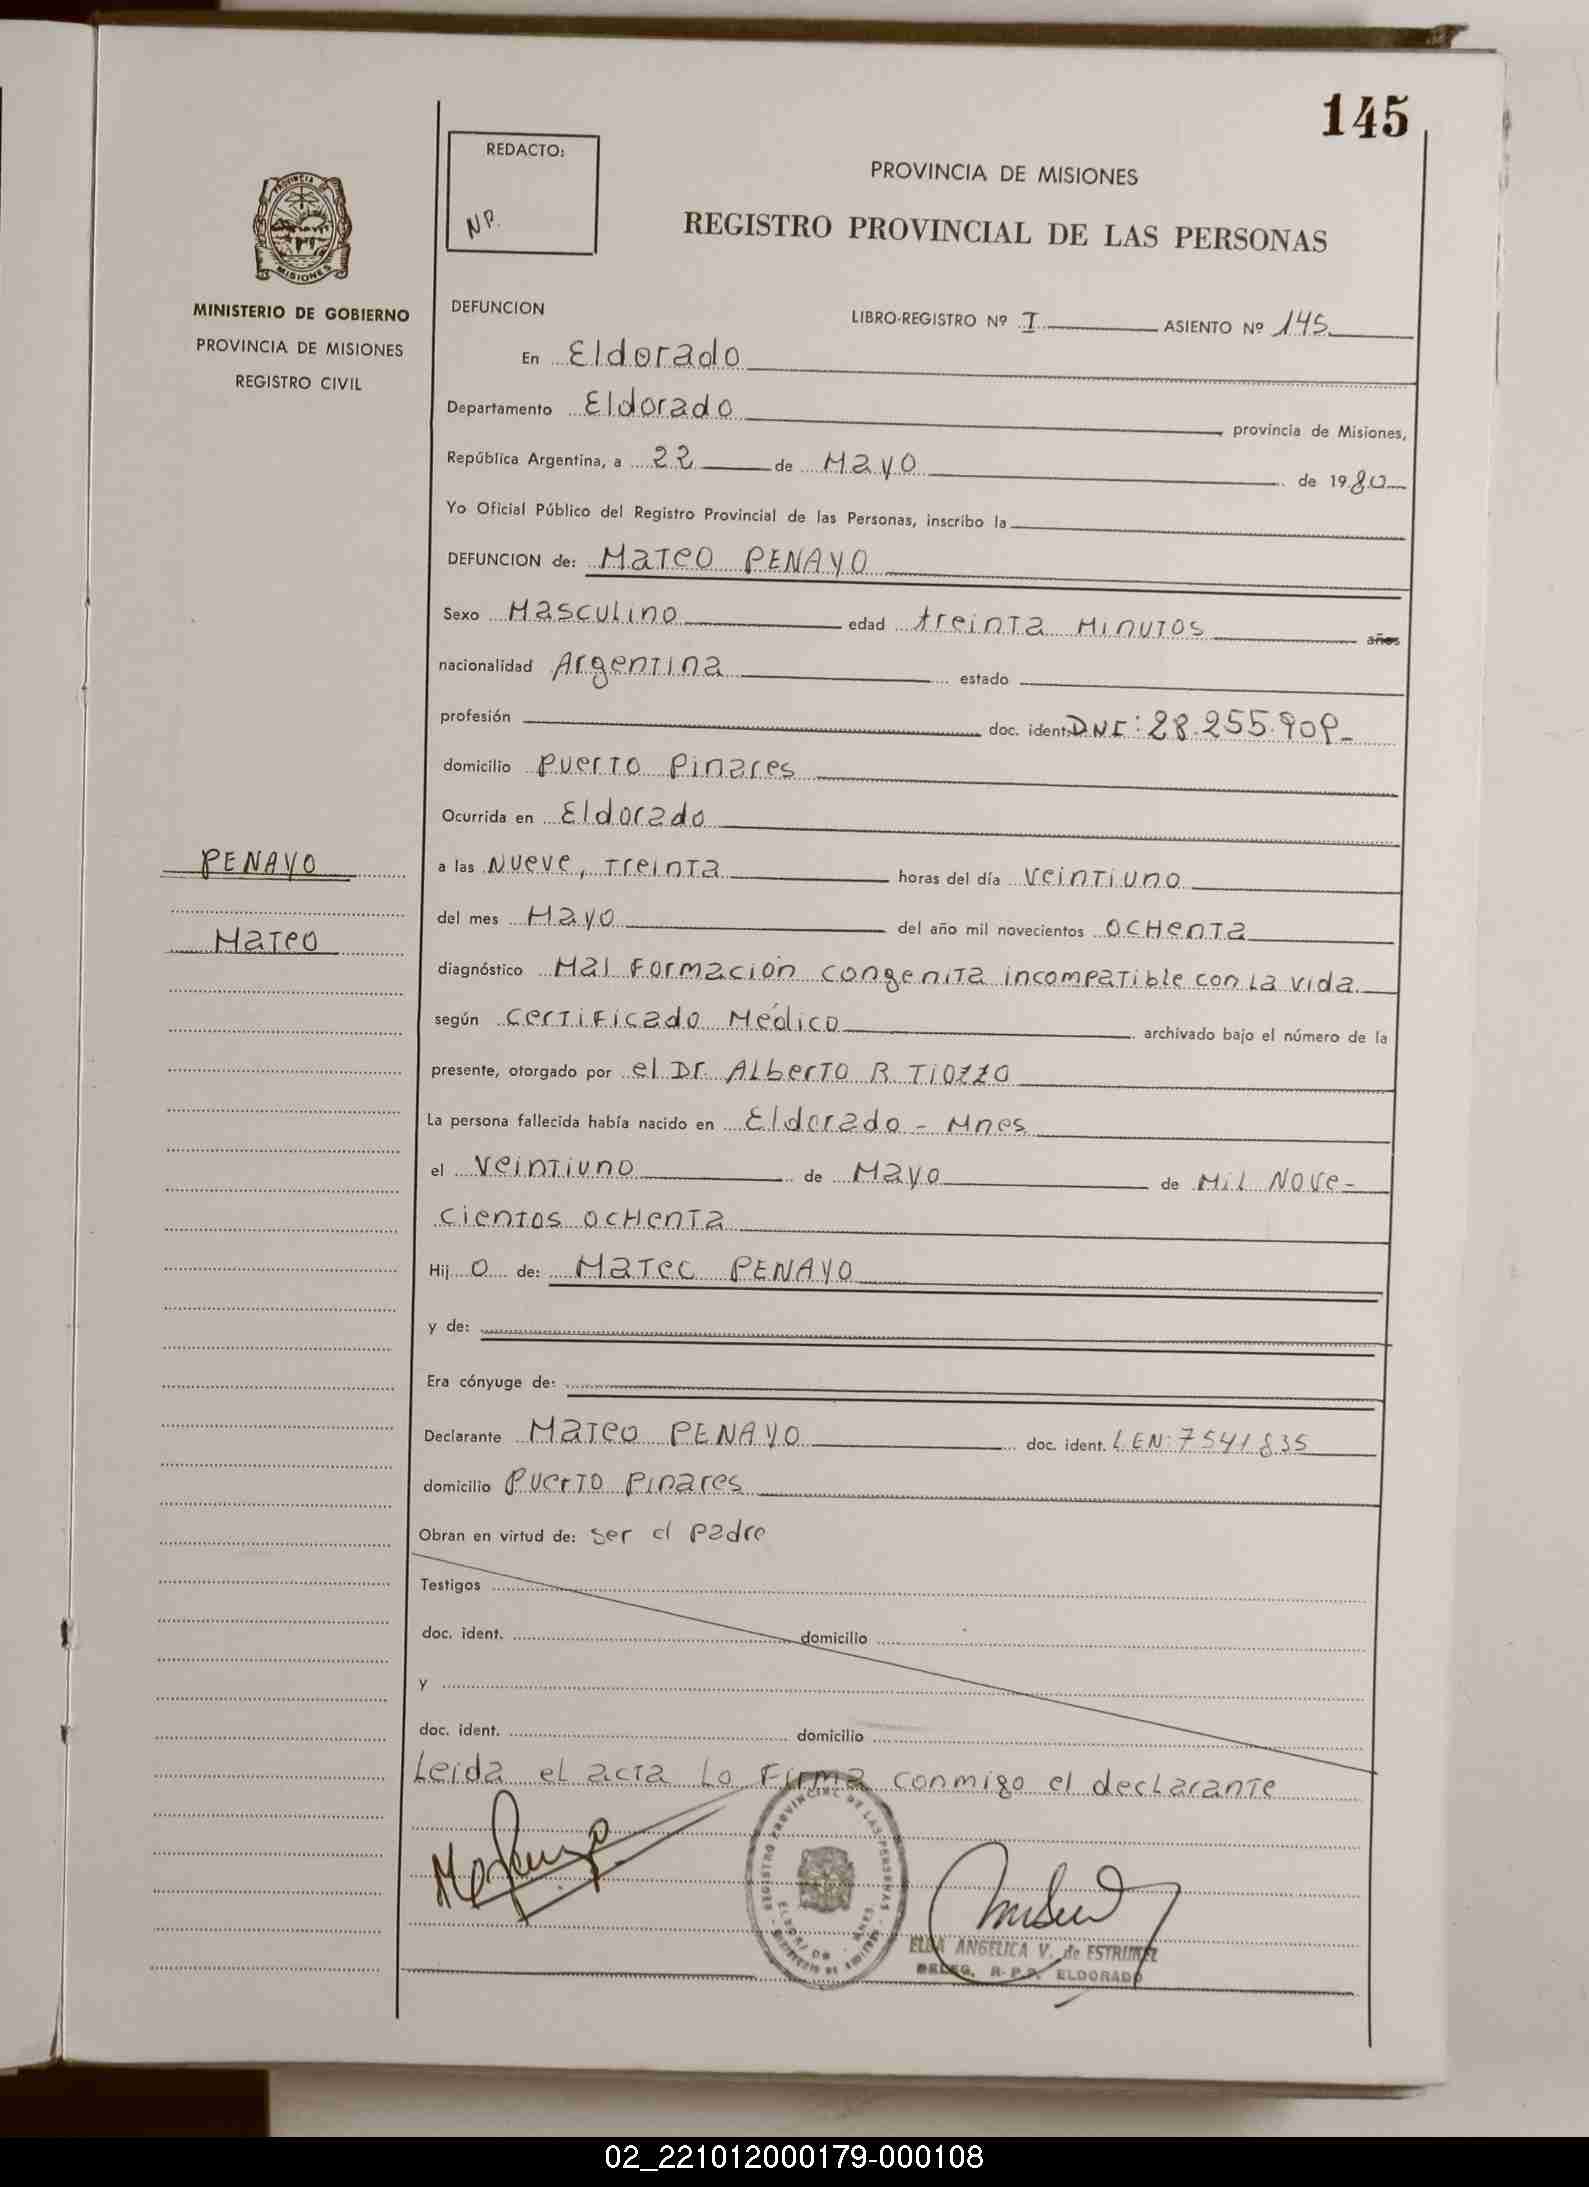 145
REDACTO:
NP.
PROVINCIA DE MISIONES
REGISTRO PROVINCIAL DE LAS PERSONAS
PROVINCIA DE
MISIONES
MINISTERIO DE GOBIERNO
PROVINCIA DE MISIONES
REGISTRO CIVIL
DEFUNCION
LIBRO-REGISTRO Nº I ASIENTO Nº 145
En Eldorado
Departamento Eldorado provincia de Misiones,
República Argentina, a 22 de Mayo de 1980
Yo Oficial Público del Registro Provincial de las Personas, inscribo la
DEFUNCION de: Mateo PENAYO
Sexo Masculino edad treinta Minutos años
nacionalidad Argentina estado
profesión doc. ident. DNI: 28.255.909
domicilio Puerto Pinares
Ocurrida en Eldorado
PENAYO
Mateo
a las Nueve, Treinta horas del día veintiuno
del mes Mayo del año mil novecientos ochenta
diagnóstico Mal Formación congenita incompatible con La vida
según certificado Médico archivado bajo el número de la
presente, otorgado por el Dr. Alberto R Tiozzo
La persona fallecida había nacido en Eldorado - Mnes
el veintiuno de Mayo de Mil Nove-
cientos ochenta
Hijo de: Mateo PENAYO
y de:
Era cónyuge de:
Declarante Mateo PENAYO doc. ident. LEN: 7541835
domicilio Puerto Pinares
Obran en virtud de: ser el padre
Testigos
doc. ident. domicilio
y
doc. ident. domicilio
Leida el acta Lo Firma conmigo el declarante
REGISTRO PROVINCIAL DE LAS PERSONAS
ELDORADO - MNES.
ELDA ANGELICA V. de ESTRUMEL
DELEG. R.P.P. ELDORADO
02_221012000179-000108